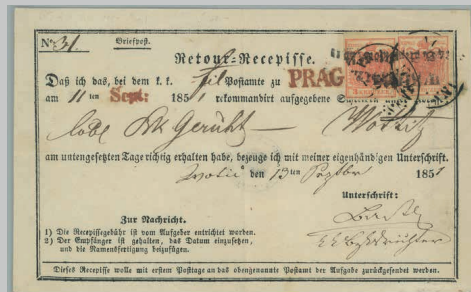 No. 31. Briefpost.
Retour-Recepisse.
Daß ich das, bei dem k. k. Postamte zu PRAG
am 11ten Sept: 1851 rekommandirt aufgegebene Schreiben
Gerücht — Wotitz
am untengesetzten Tage richtig erhalten habe, bezeuge ich mit meiner eigenhändigen Unterschrift.
den 13ten Septbr 1851
Unterschrift:
Zur Nachricht.
1) Die Recepissegebühr ist vom Aufgeber entrichtet worden.
2) Der Empfänger ist gehalten, das Datum einzusetzen,
und die Namensfertigung beizufügen.
Dieses Recepisse wolle mit erstem Posttage an das obengenannte Postamt der Aufgabe zurückgesendet werden.